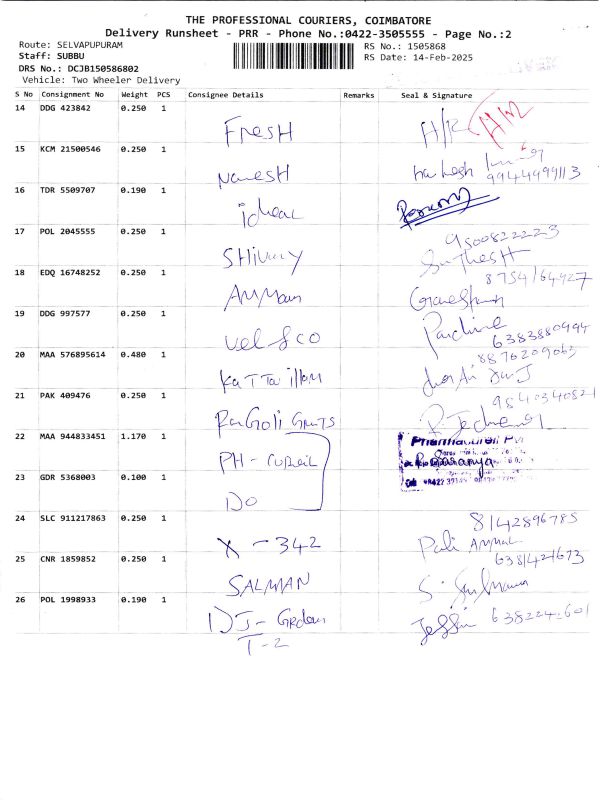 THE PROFESSIONAL COURIERS, COIMBATORE
Delivery Runsheet - PRR - Phone No.:0422-3505555 - Page No.:2
Route: SELVAPUPURAM
RS No.: 1505868
Staff: SUBBU
RS Date: 14-Feb-2025
DRS No.: DCJB150586802
Vehicle: Two Wheeler Delivery
S No Consignment No Weight PCS Consignee Details Remarks Seal & Signature
14 DDG 423842 0.250 1
FRESH H/R
15 KCM 21500546 0.250 1
NARESH 9944999113
16 TDR 5509707 0.190 1
ideal
17 POL 2045555 0.250 1
9500822223
SHIVAY
18 EDQ 16748252 0.250 1
8754164927
AMMAN
19 DDG 997577 0.250 1
vel & co 6383880994
20 MAA 576895614 0.480 1
8876209065
KATTAI illam
21 PAK 409476 0.250 1
9840340821
RanGoli
22 MAA 944833451 1.170 1
PH-
23 GDR 5368003 0.100 1
DO
24 SLC 911217863 0.250 1
8142896785
X - 342
25 CNR 1859852 0.250 1
6381421673
SALMAN
26 POL 1998933 0.190 1
DJ-
T-2